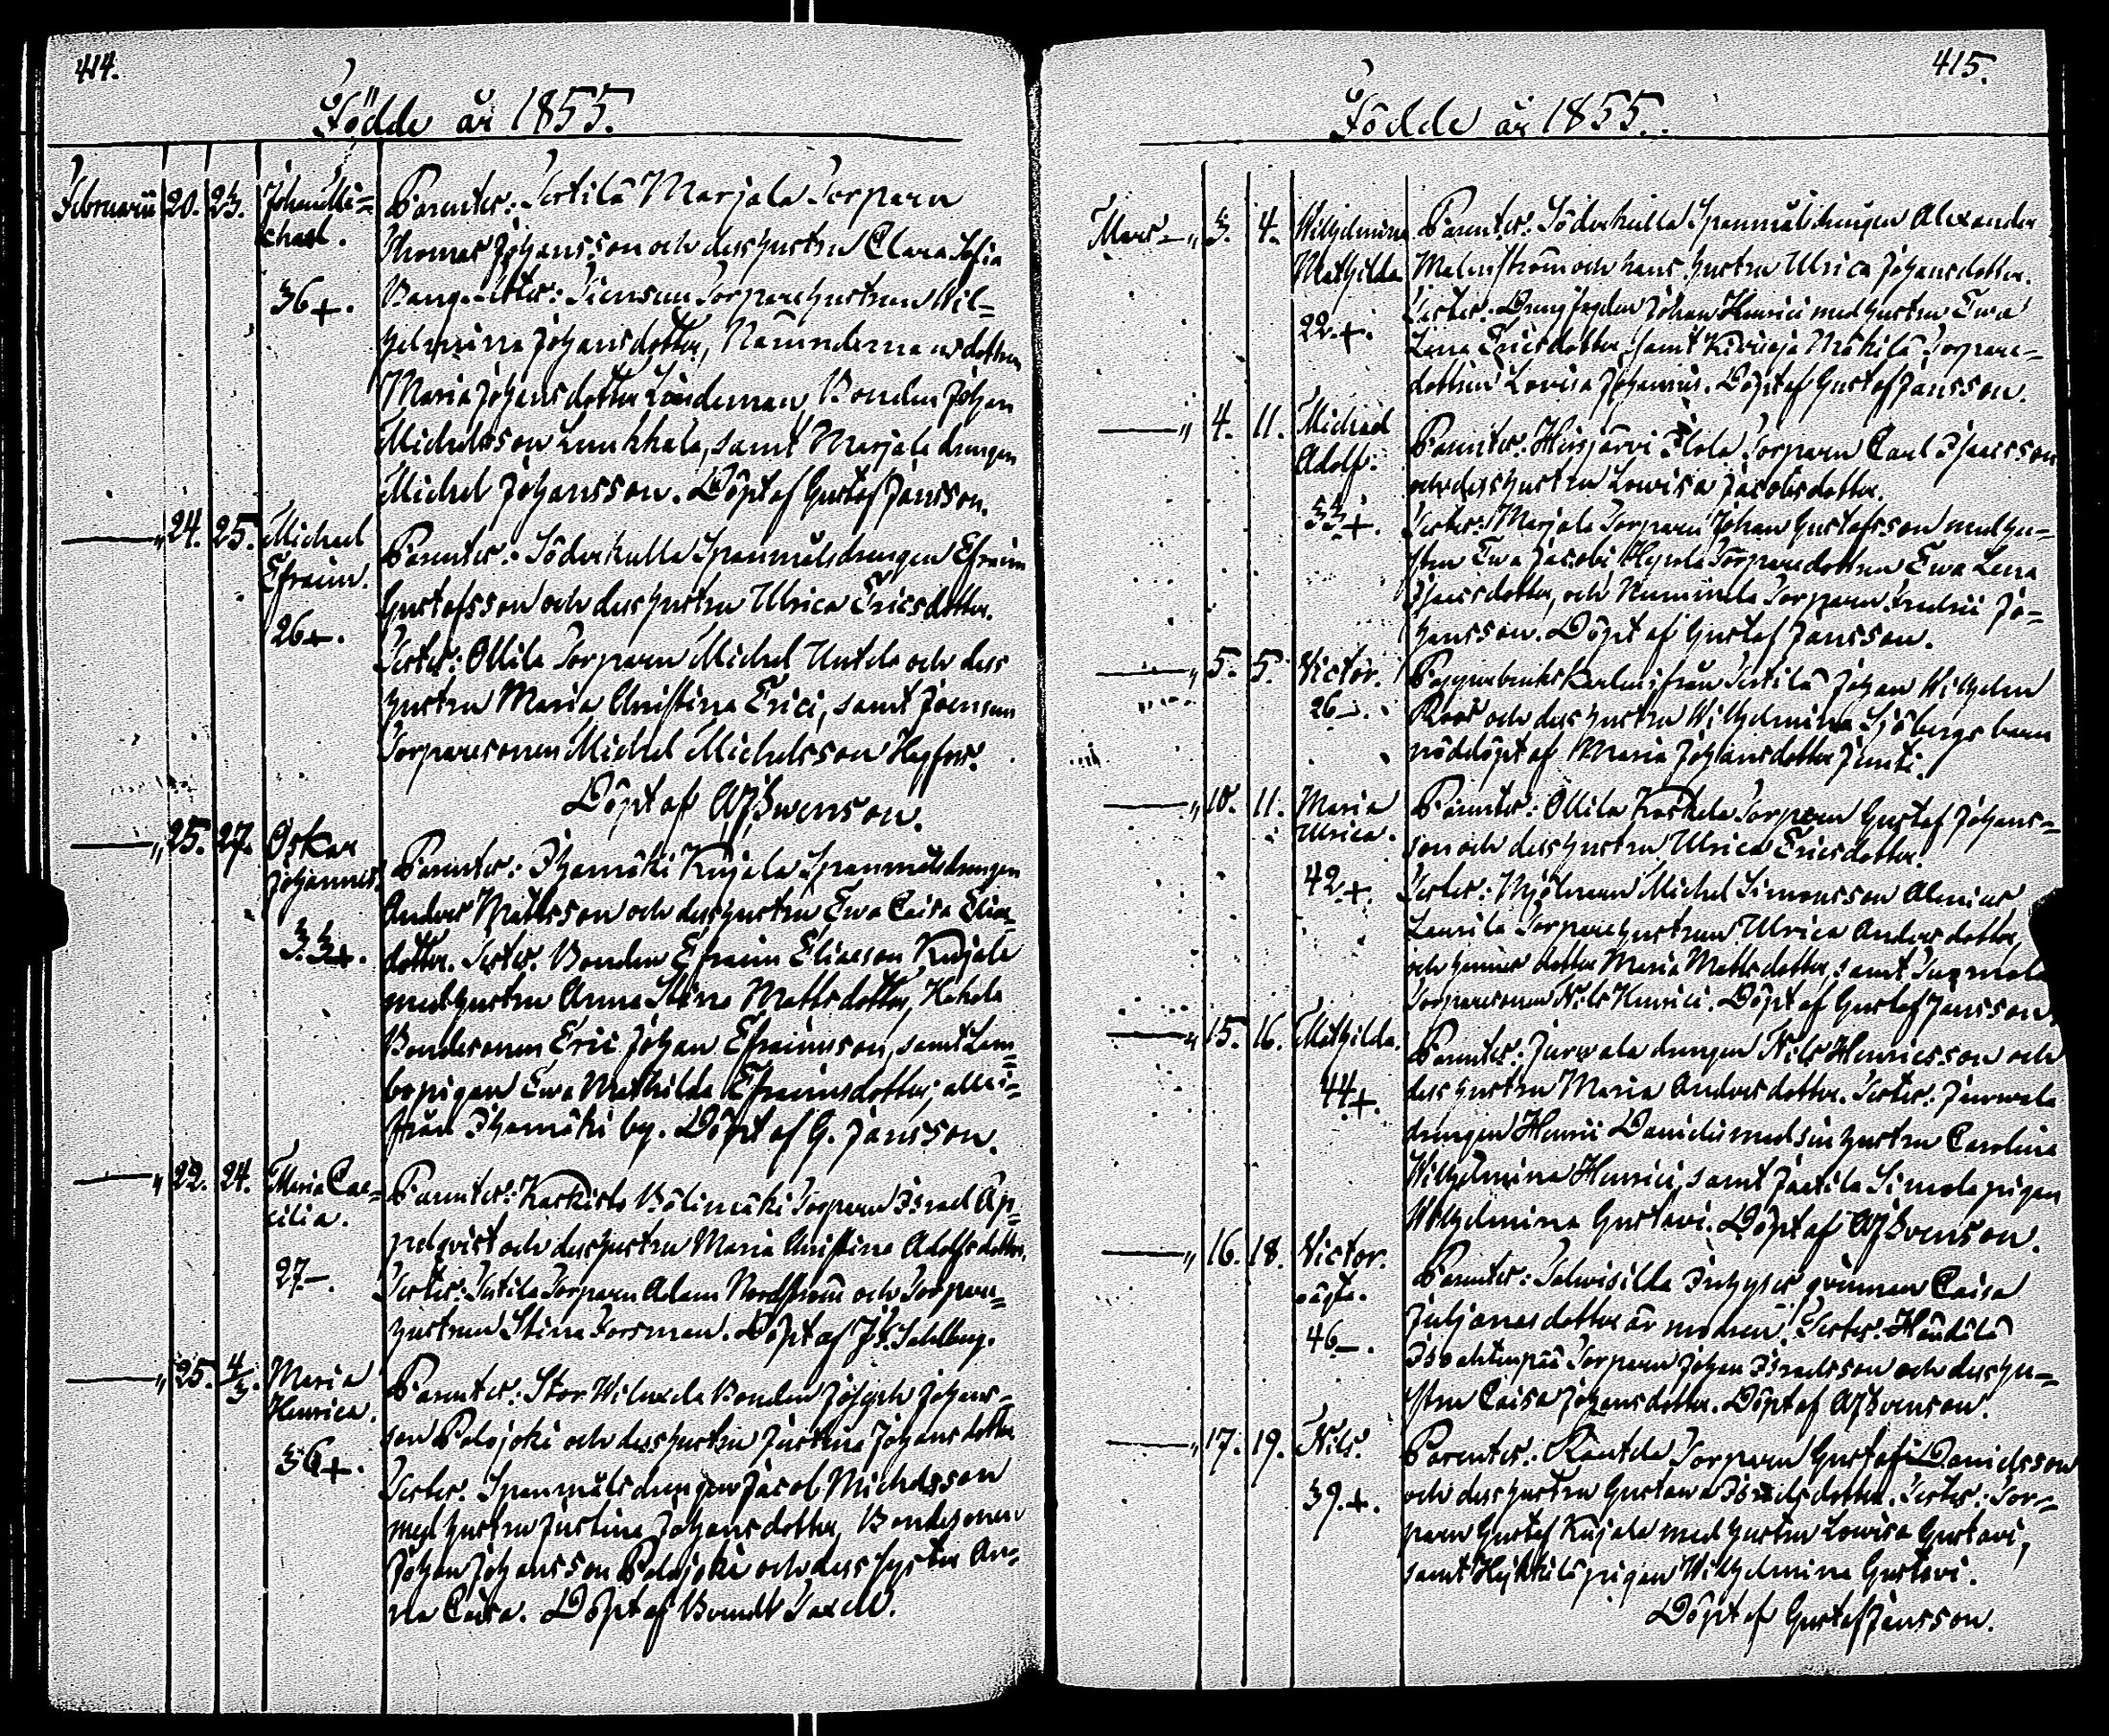 414.
Födde år 1855.
Februarii 20. 23. Johan Mi=
chael.
36+.
Parenter: Sertilä Marjala Torparn
Thomas Johansson och dess hustru Clara Sofia
Bang. Tester: Torparehustrun Wil=
helmina Johansdotter,
Maria Johansdotter Lindeman, Bonden Johan
Michelsson Luukkala, samt Marjala drengen
Michel Johansson. Döpt af Gustaf Jansson.
" 24. 25. Michael
Efraim.
26+.
Parenter: Söderkulla Spanmålsdrengen Efraim
Gustafsson och dess hustru Ulrica Ericsdotter.
Tester: Ollila Torparn Michel Untala och dess
hustru Maria Christina Erici, samt
Torparesonen Michel Michelsson Hegfors.
Döpt af AJ Swenson.
" 25. 27. Oskar
Johannes.
33+.
Parenter: Ihamäki Kujala Spanmålsdrengen
Anders Mattsson och dess hustru Ewa Caisa Elias
dotter. Tester: Bonden Efraim Eliasson Kujala
med hustru Anna Stina Mattsdotter, Hakala
Bondesonen Eric Johan Efraimsson, samt Lem=
bopigan Ewa Mathilda Efraimsdotter; alla i=
från Ihamäki by. Döpt af G. Jansson.
" 22. 24. Maria Cae=
cilia.
27-.
Parenter: Karkisto Wälimäki Torparn Israel Ap=
pelqvist och dess hustru Maria Christina Adolfsdotter.
Tester: Torparn Adam Nordström och Torpare=
hustrun Stina Forsman. Döpt af Sahlberg.
" 25. 4/3. Maria
Henrica.
36+.
Parenter: Stor Bonden Joseph Johans=
son Palojoki och dess hustru Justina Johansdotter
Tester: Spanmålsdrengen Jacob Michelsson
med hustru Justina Johansdotter, Bondesonen
Johan Johansson Palojoki och dess syster An=
na Caisa. Döpt af Brandt
415.
Födde år 1855.
Mars " 3. 4. Wilhelmina
Mathilda
22.+.
Parenter: Söderkulla Spanmålsdrengen Alexander
Malmström och hans hustru Ulrica Johansdotter.
Tester: Johan Henrici med hustru Ewa
Lena Ericsdotter, samt Kivioja Mäkilä Torpare=
dottren Lovisa Johannis. Döpt af Gustaf Jansson.
" 4. 11. Michael
Adolf.
33+.
Parenter: Hirsjärvi Torparn Carl Isaacsson
och dess hustru Lowisa Jacobsdotter.
Tester: Marjala Torparn Johan Gustafsson med hu=
stru Ewa Jacobi, Torparedottren Ewa Lena
Isacsdotter, och Torparn Fredric Jo=
hansson. Döpt af Gustaf Jansson.
" 5. 5. Victor.
26-.
Pappersbrukskarlen ifrån Johan Wilhelm
Roos och dess hustru Wilhelmina Sjöbergs barn
nöddöpt af Maria Johansdotter
" 10. 11. Maria
Ulrica.
42+.
Parenter: Ollila Torparn Gustaf Johans=
son och dess hustru Ulrica Ericsdotter.
Tester: Mjölnaren Michel Simonsson
Torparehustrun Ulrica Andersdotter,
och hennes dotter Maria Mattsdotter, samt
Torparesonen Nils Henrici. Döpt af Gustaf Jansson.
" 15. 16. Mathilda.
44+.
Parenter: drengen Nils Henricsson och
dess hustru Maria Andersdotter. Tester:
drengen Henric Danielis med sin hustru Carolina
Wilhelmina Henrici, samt Simola pigan
Wilhelmina Gustavi. Döpt af AJ Svenson.
" 16. 18. Victor.
oägta.
46-.
Parenter: Inhyses qvinnan Caisa
Juljanasdotter är modren. Tester:
Torparn Johan Israelsson och dess hu=
stru Caisa Johansdotter. Döpt af AJ Svenson.
" 17. 19. Nils.
39.+.
Parenter: Torparn Gustaf Danielsson
och dess hustru Gustava Israelsdotter. Tester: Tor=
paren Gustaf Kujala med hustru Lowisa Gustavi,
samt Heikkilä pigan Wilhelmina Gustavi.
Döpt af Gustaf Jansson.